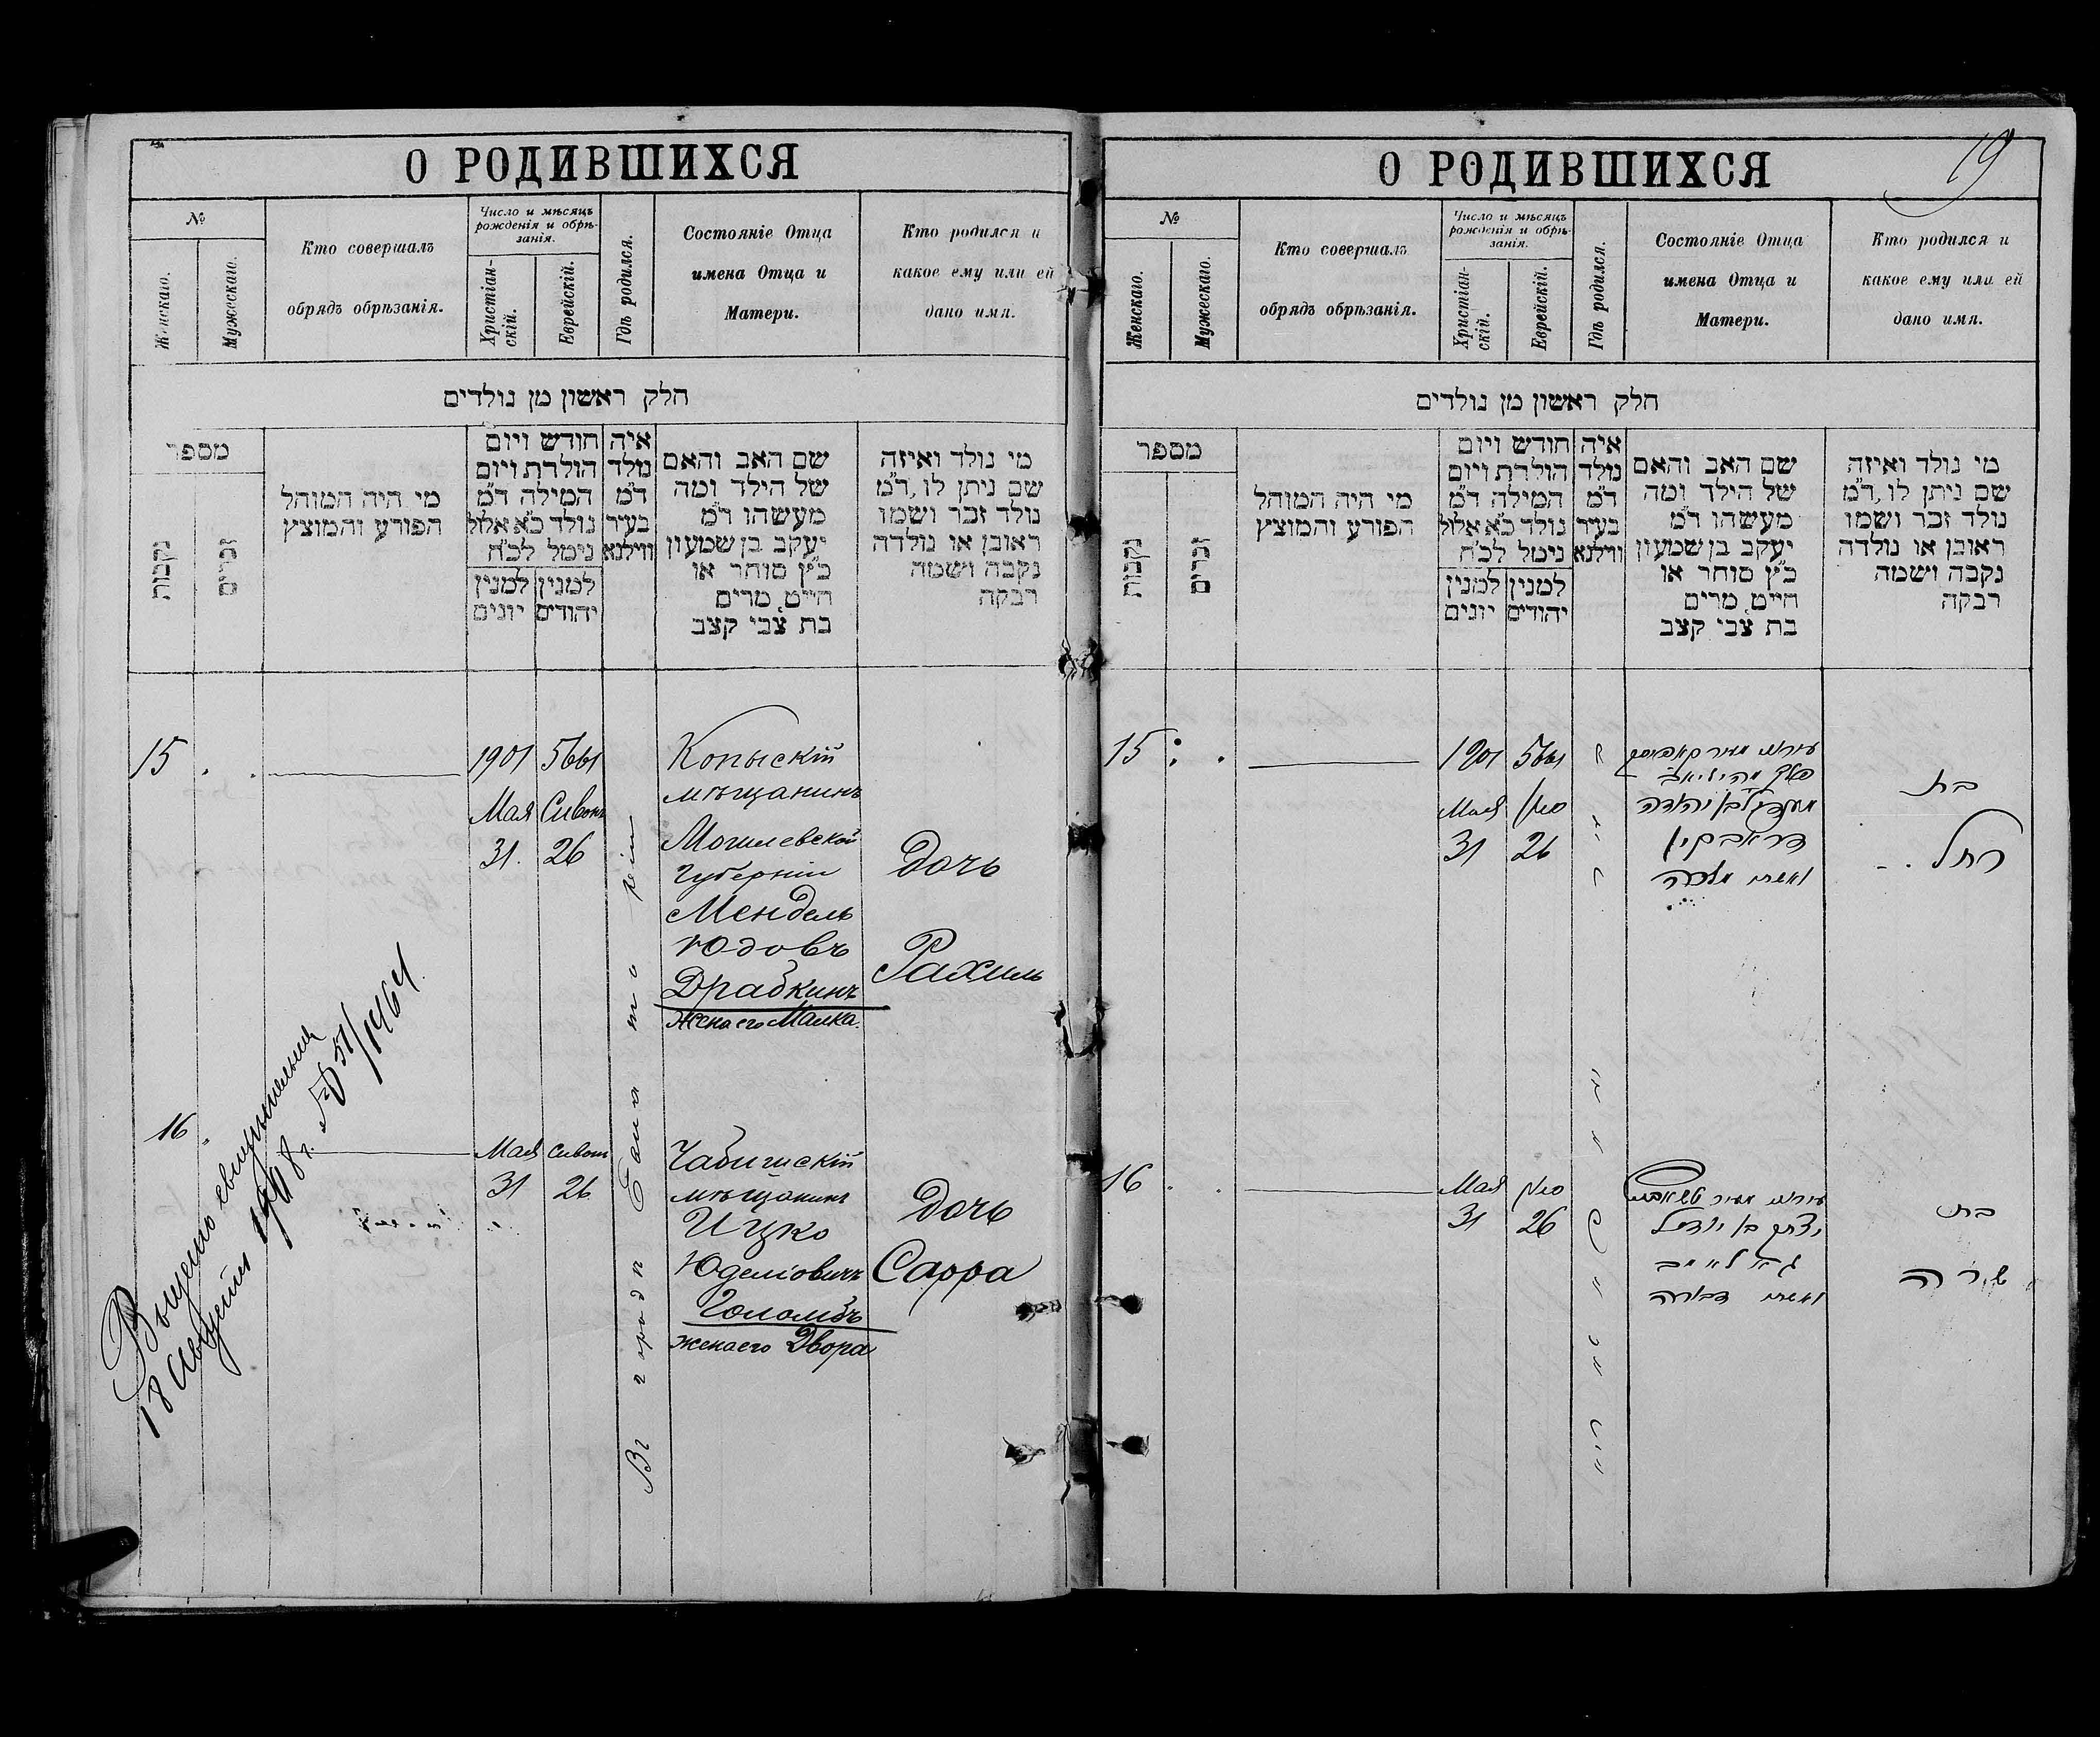 О РОДИВШИХСЯ
№
Женскаго.
Мужескаго.
Кто совершалъ
обрядъ обрѣзанія.
Число и мѣсяцъ
рожденія и обрѣ-
занія.
Христіан-
скій.
Еврейскій.
Гдѣ родился.
Состояніе Отца
имена Отца и
Матери.
Кто родился и
какое ему или ей
дано имя.
חלק ראשון מן נולדים
מספר
נקבות
זכרים
מי היה המוהל
הפורע והמוצץ
חודש ויום
הולדת ויום
המילה ד״מ
נולד כ״א אלול
נימל לכ״ח
למנין יונים
למנין יהודים
איה
נולד
ד״מ
בעיר
ווילנא
שם האב והאם
של הילד ומה
מעשהו ד״מ
יעקב בן שמעון
כ״ץ סוחר או
חייט, מרים
בת צבי קצב
מי נולד ואיזה
שם ניתן לו, ד״מ
נולד זכר ושמו
ראובן או נולדה
נקבה ושמה
רבקה
15
1901 5661
Мая Сивон
31. 26
Копыскій
мѣщанинъ
Могилевской
Губерніи
Мендель
Юдовъ
Драбкинъ
жена его Малка.
Дочь
Рахиль
16
Мая Сивон
31 26
мѣщанинъ
Ицко
Юделіовичъ
Голомбъ
жена его Двора
Дочь
Сарра
Въ городѣ
18 Августа 1908 г. №
О РОДИВШИХСЯ
19
№
Женскаго.
Мужескаго.
Кто совершалъ
обрядъ обрѣзанія.
Число и мѣсяцъ
рожденія и обрѣ-
занія.
Христіан-
скій.
Еврейскій.
Гдѣ родился.
Состояніе Отца
имена Отца и
Матери.
Кто родился и
какое ему или ей
дано имя.
חלק ראשון מן נולדים
מספר
נקבות
זכרים
מי היה המוהל
הפורע והמוצץ
חודש ויום
הולדת ויום
המילה ד״מ
נולד כ״א אלול
נימל לכ״ח
למנין יונים
למנין יהודים
איה
נולד
ד״מ
בעיר
ווילנא
שם האב והאם
של הילד ומה
מעשהו ד״מ
יעקב בן שמעון
כ״ץ סוחר או
חייט, מרים
בת צבי קצב
מי נולד ואיזה
שם ניתן לו, ד״מ
נולד זכר ושמו
ראובן או נולדה
נקבה ושמה
רבקה
15
1901 5661
Мая סיון
31 26
בן יהודה
דראבקין
ואשתו מלכה
בת
רחל
16
Мая סיון
31 26
יצחק בן יודיל
ואשתו דבורה
בת
שרה